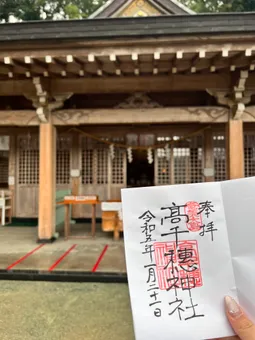 奉拝
高千穂神社
令和五年一月二十一日